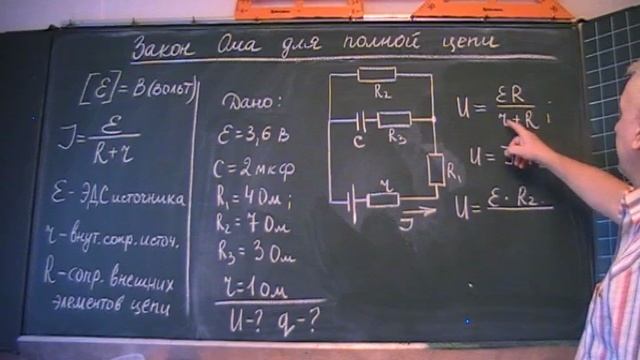 Закон Ома для полной цепи
[Ɛ] = В (вольт)
J = Ɛ / (R + r)
Ɛ - ЭДС источника
r - внут. сопр. источ.
R - сопр. внешних
элементов цепи
Дано:
Ɛ = 3,6 В
C = 2 мкф
R₁ = 4 Ом;
R₂ = 7 Ом
R₃ = 3 Ом
r = 1 Ом
U - ? q - ?
R₂
C
R₃
R₁
r
J
U = ƐR / (r + R) ;
U =
U = Ɛ · R₂